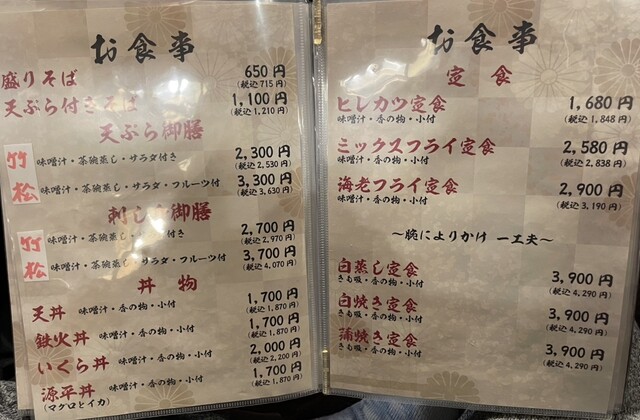 お食事
盛りそば 650円
(税込715円)
天ぷら付きそば 1,100円
(税込1,210円)
天ぷら御膳
竹 味噌汁・茶碗蒸し・サラダ付き 2,300円
(税込2,530円)
松 味噌汁・茶碗蒸し・サラダ・フルーツ付 3,300円
(税込3,630円)
刺し身御膳
竹 味噌汁・茶碗蒸し・サラダ付き 2,700円
(税込2,970円)
松 味噌汁・茶碗蒸し・サラダ・フルーツ付 3,700円
(税込4,070円)
丼物
天丼 味噌汁・香の物・小付 1,700円
(税込1,870円)
鉄火丼 味噌汁・香の物・小付 1,700円
(税込1,870円)
いくら丼 味噌汁・香の物・小付 2,000円
(税込2,200円)
源平丼 味噌汁・香の物・小付 1,700円
(マグロとイカ) (税込1,870円)
お食事
定食
ヒレカツ定食 1,680円
味噌汁・香の物・小付 (税込1,848円)
ミックスフライ定食 2,580円
味噌汁・香の物・小付 (税込2,838円)
海老フライ定食 2,900円
味噌汁・香の物・小付 (税込3,190円)
～腕によりかけ 一工夫～
白蒸し定食 3,900円
きも吸・香の物・小付 (税込4,290円)
白焼き定食 3,900円
きも吸・香の物・小付 (税込4,290円)
蒲焼き定食 3,900円
きも吸・香の物・小付 (税込4,290円)